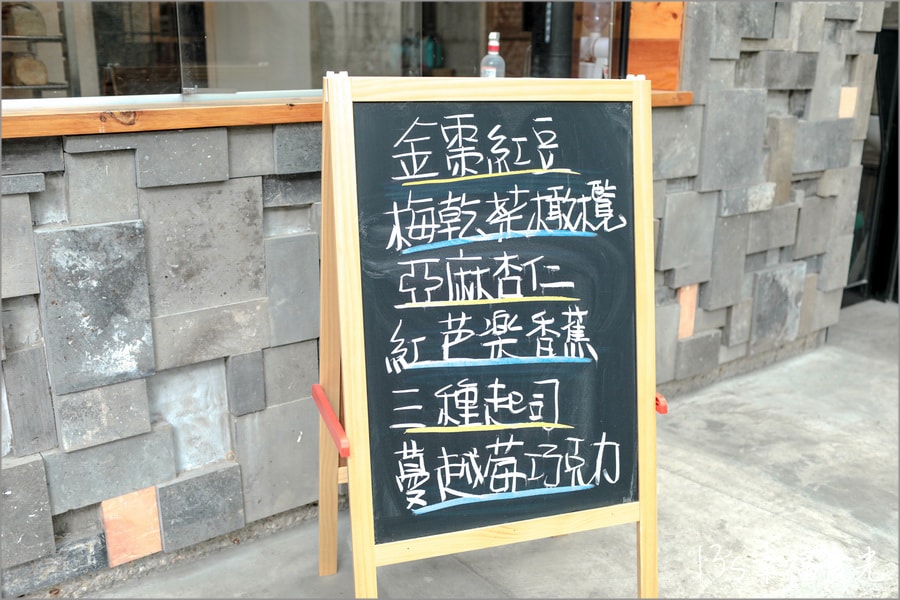 金棗紅豆
梅乾菜橄欖
亞麻杏仁
紅芭樂香蕉
三種起司
蔓越莓巧克力